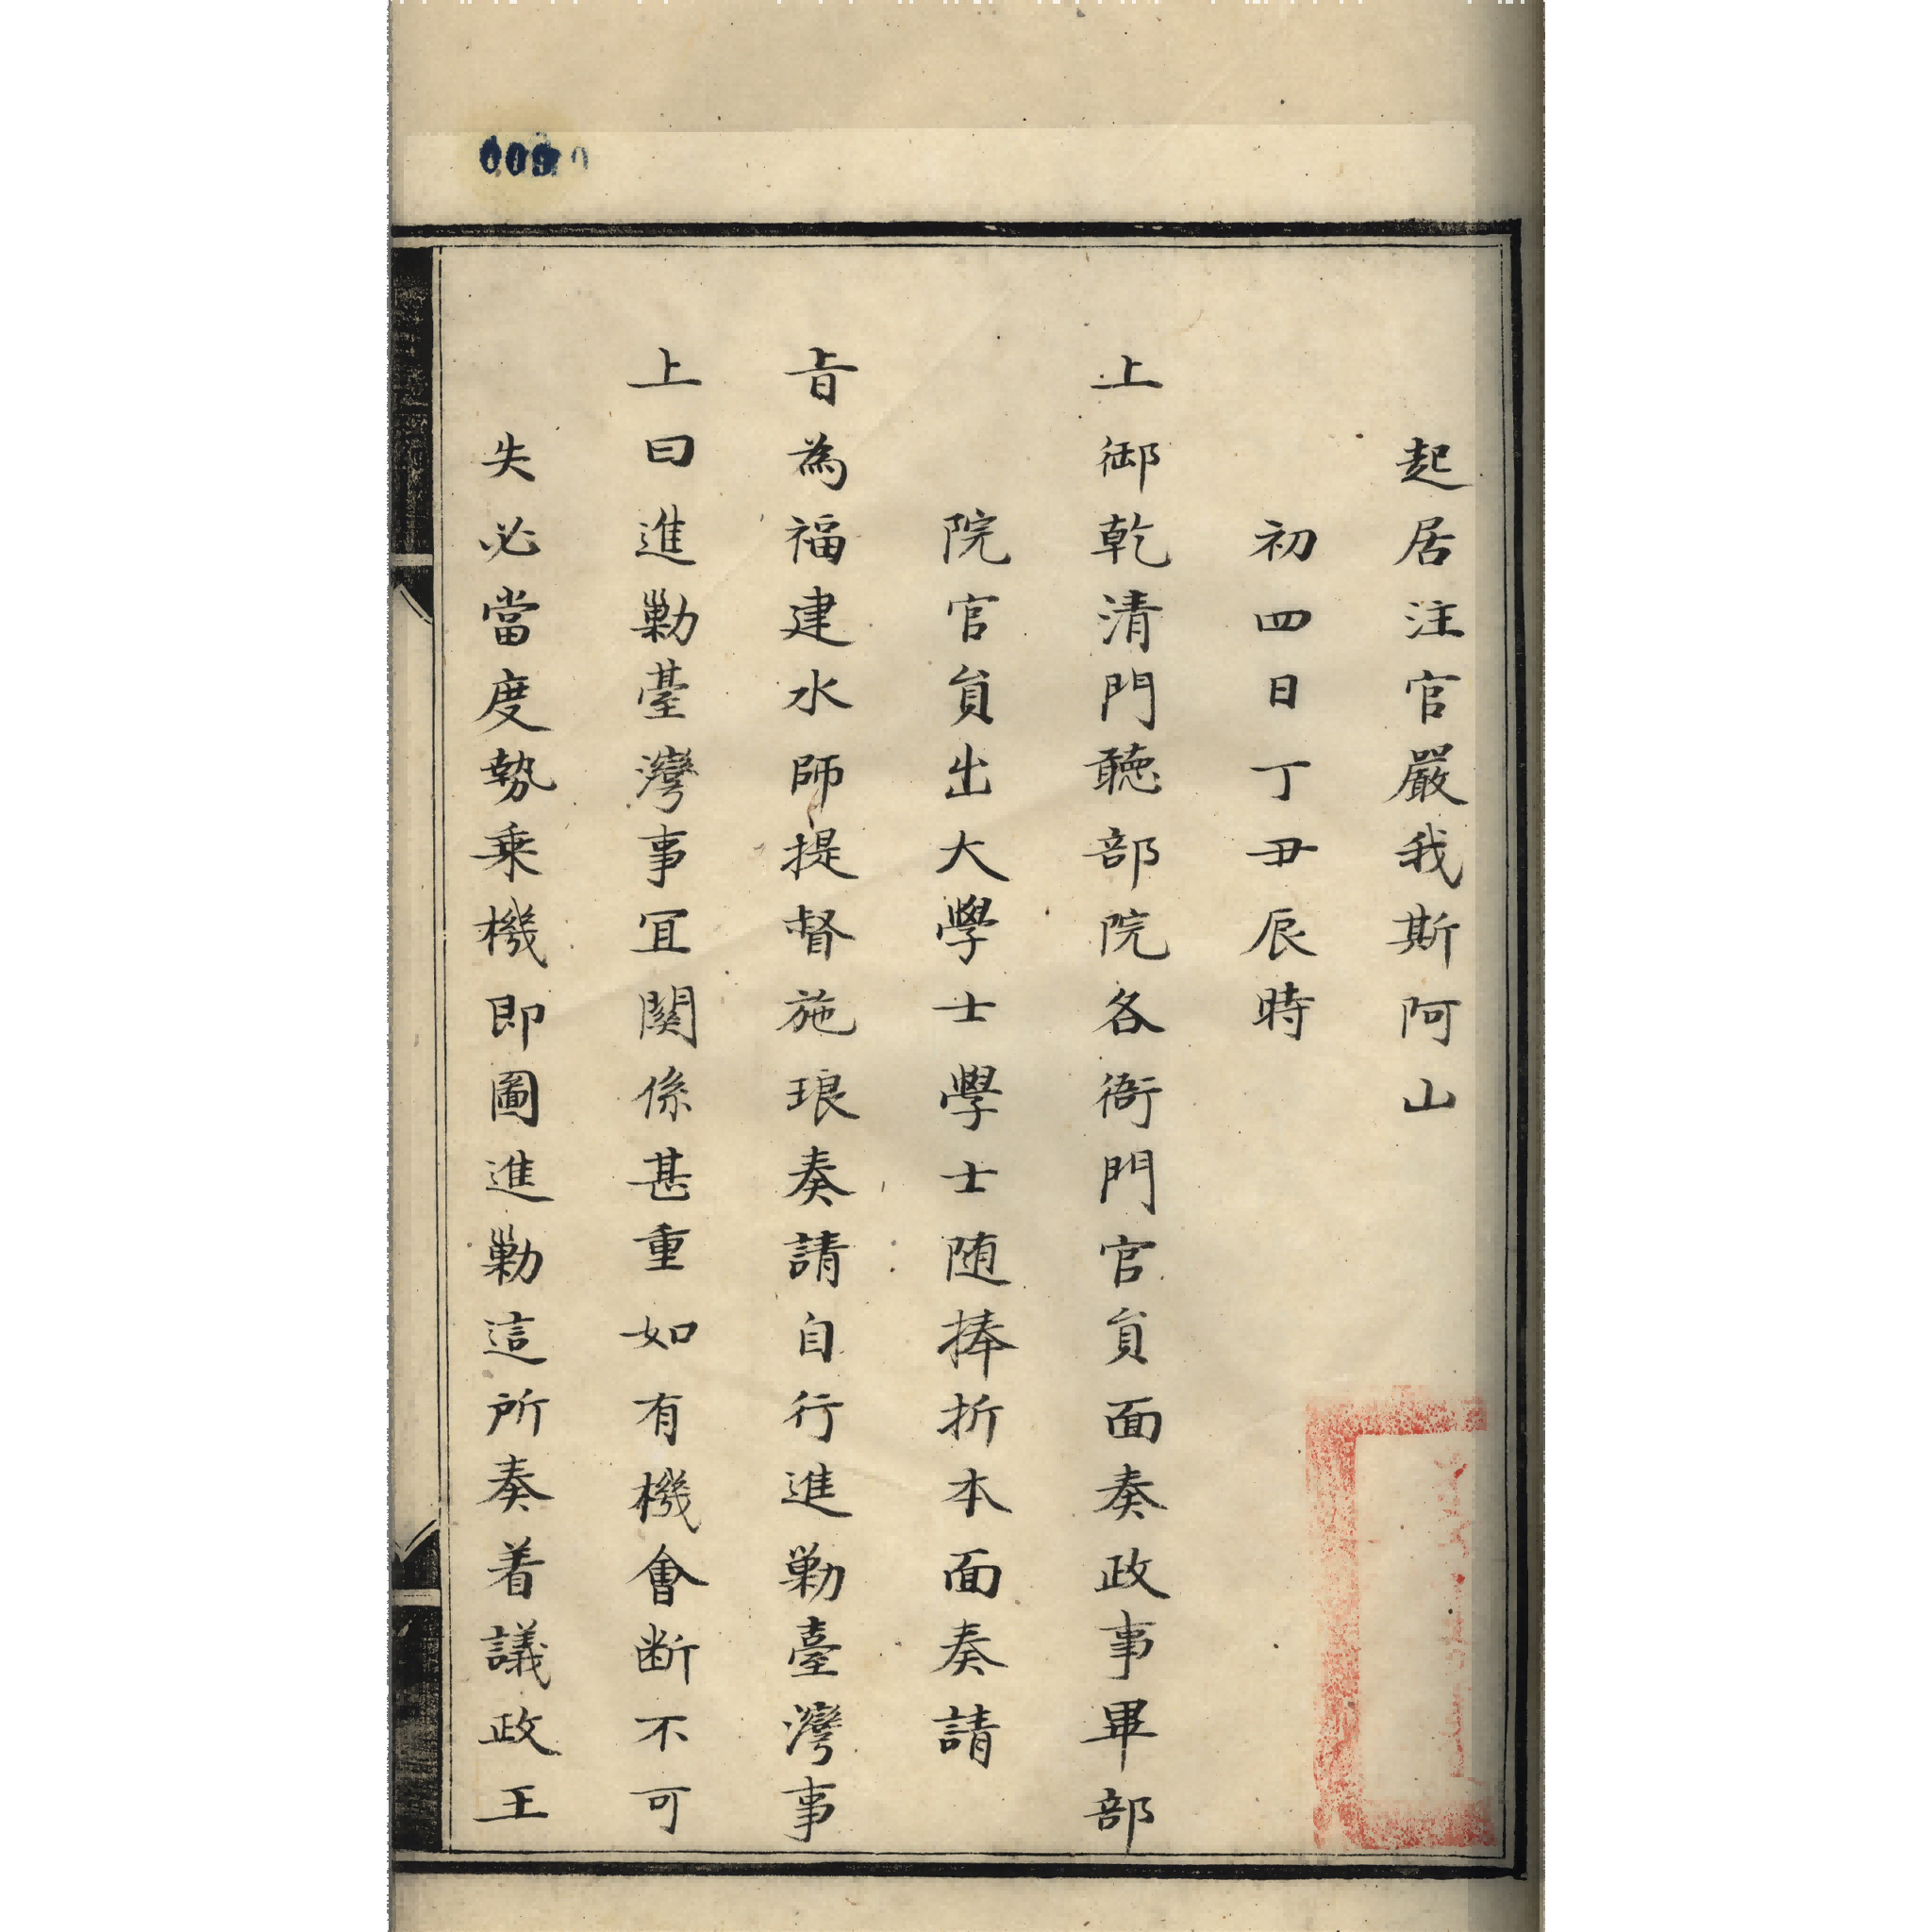 起居注官嚴我斯阿山
初四日丁丑辰時
上御乾清門聽部院各衙門官員面奏政事畢部
院官員出大學士學士随捧折本面奏請
旨為福建水師提督施琅奏請自行進勦臺灣事
上曰進勦臺灣事宜關係甚重如有機會断不可
失必當度勢乗機即圖進勦這所奏着議政王